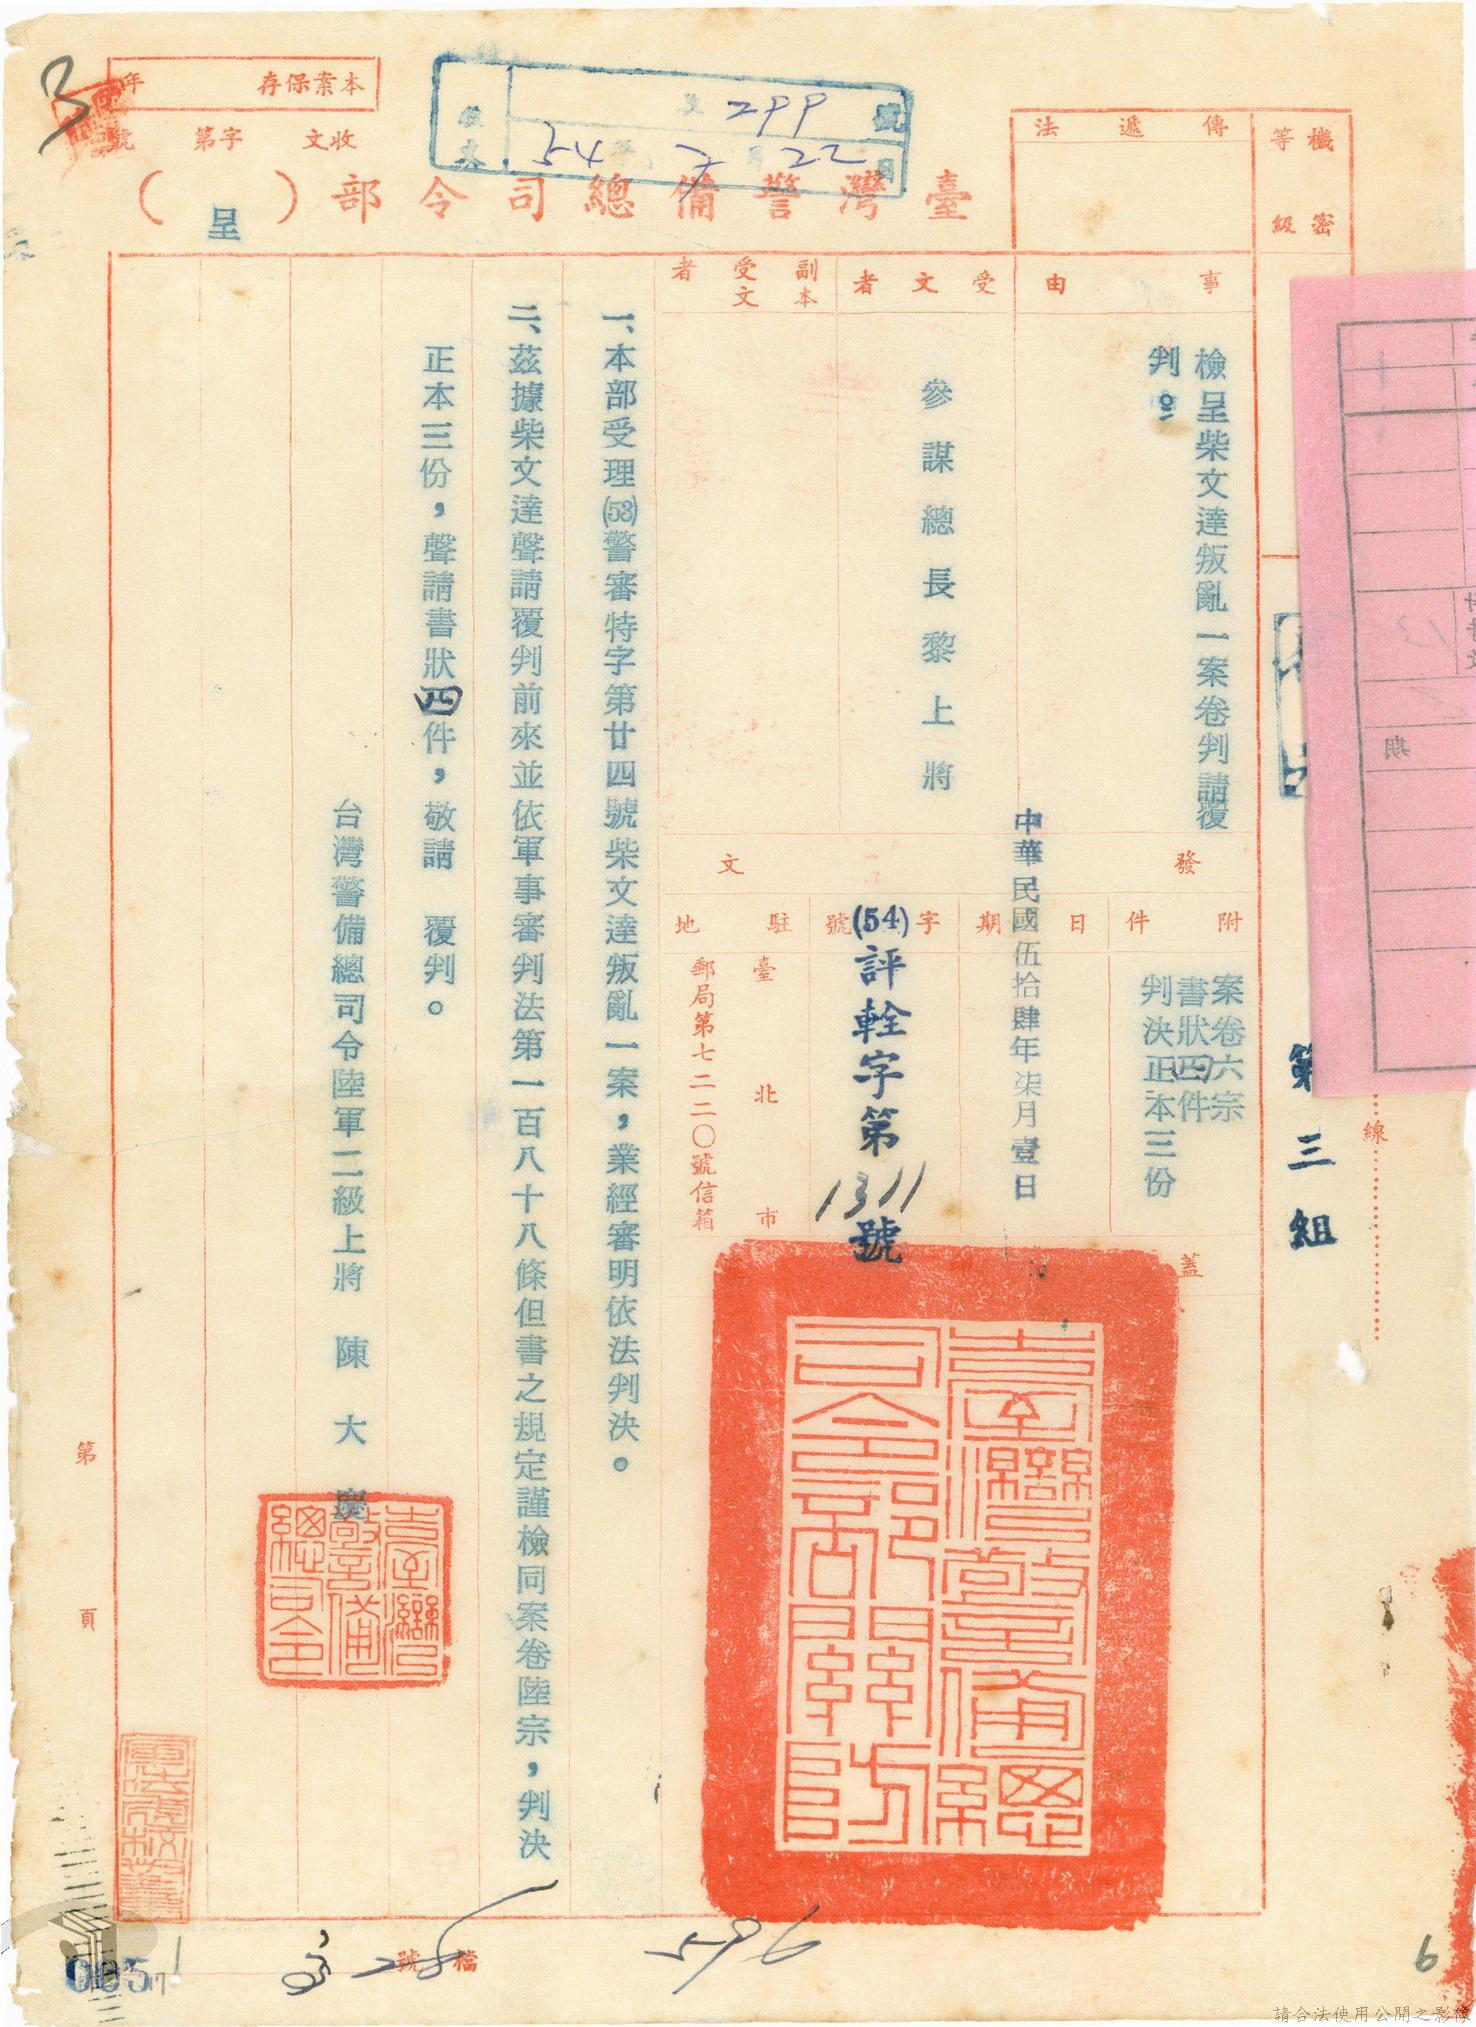 3
本案保存 年
收文 字第 號
收文 字 299 號
54年7月22日
臺灣警備總司令部(呈)
機密等級
傳遞法
事由
檢呈柴文達叛亂一案卷判請覆
判由
受文者
參謀總長黎上將
副本受文者
發文
附件
案卷六宗
書狀四件
判決正本三份
日期
中華民國伍拾肆年柒月壹日
字號
(54)評輇字第1311號
駐地
臺北市
郵局第七二二〇號信箱
蓋
臺灣警備總司令部關防
一、本部受理(53)警審特字第廿四號柴文達叛亂一案,業經審明依法判決。
二、茲據柴文達聲請覆判前來並依軍事審判法第一百八十八條但書之規定謹檢同案卷陸宗,判決
正本三份,聲請書狀四件,敬請 覆判。
台灣警備總司令陸軍二級上將 陳大慶
臺灣警備總司令
第三組
線
期
第 頁
檔號
596
005
6
請合法使用公開之影像